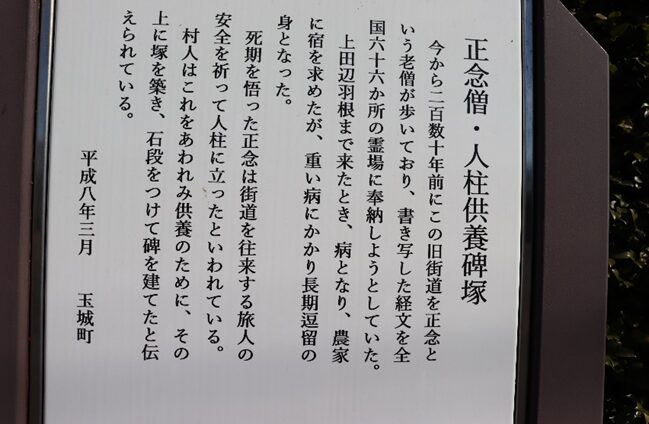 正念僧・人柱供養碑塚
今から二百数十年前にこの旧街道を正念と
いう老僧が歩いており、書き写した経文を全
国六十六か所の霊場に奉納しようとしていた。
上田辺羽根まで来たとき、病となり、農家
に宿を求めたが、重い病にかかり長期逗留の
身となった。
死期を悟った正念は街道を往来する旅人の
安全を祈って人柱に立ったといわれている。
村人はこれをあわれみ供養のために、その
上に塚を築き、石段をつけて碑を建てたと伝
えられている。
平成八年三月 玉城町